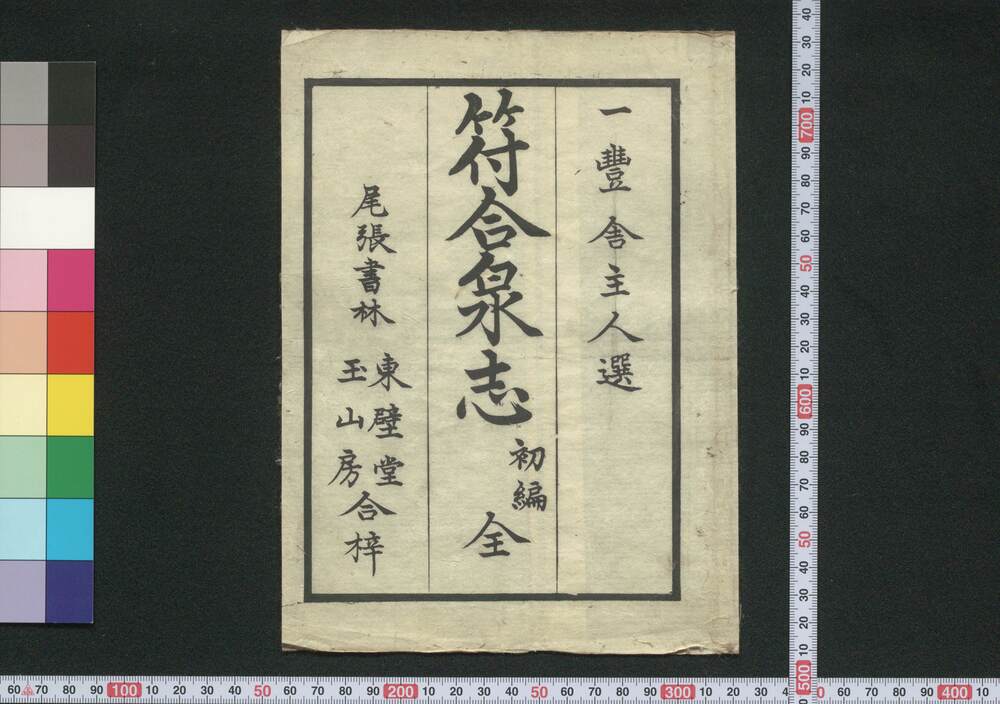 一豐舎主人選
符合泉志 初編 全
尾張書林 東壁堂 玉山房 合梓
40
30
20
10
700
90
80
70
60
50
40
30
20
10
600
90
80
70
60
50
40
30
20
10
500
60 70 80 90 100 10 20 30 40 50 60 70 80 90 200 10 20 30 40 50 60 70 80 90 300 10 20 30 4 0 60 70 80 90 400 10